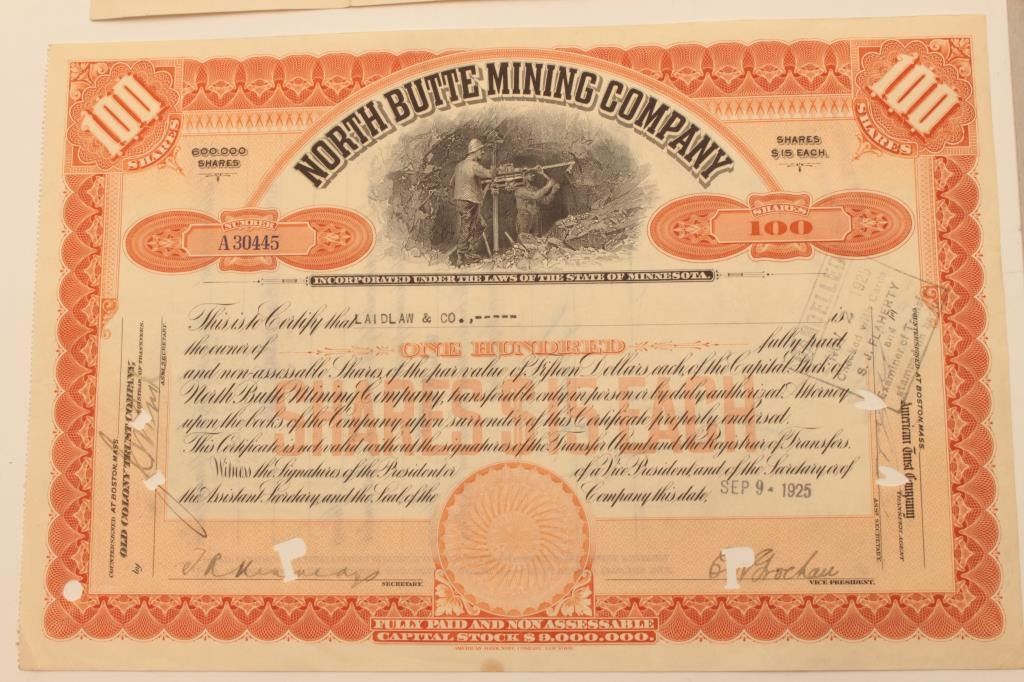 100
SHARES
NORTH BUTTE MINING COMPANY
100
SHARES
600,000
SHARES
SHARES
$15 EACH
NUMBER
A 30445
SHARES
100
INCORPORATED UNDER THE LAWS OF THE STATE OF MINNESOTA.
This is to Certify that LAIDLAW & CO.,----- is
the owner of ONE HUNDRED fully paid
and non-assessable Shares of the par value of Fifteen Dollars each, of the Capital Stock of
North Butte Mining Company, transferable only in person or by duly authorized Attorney
upon the books of the Company upon surrender of this Certificate properly endorsed.
This Certificate is not valid without the signatures of the Transfer Agent and the Registrar of Transfers.
Witness the Signatures of the President or of a Vice President and of the Secretary or of
the Assistant Secretary, and the Seal of the Company this date, SEP 9 - 1925
SHARES $15 EACH
COUNTERSIGNED AT BOSTON, MASS.
OLD COLONY TRUST COMPANY,
REGISTRAR OF TRANSFERS.
by
ASST. SECRETARY
CANCELLED
1925
Checked with Card
S. J. FLAHERTY
Examiner of T.
COUNTERSIGNED AT BOSTON, MASS.
American Trust Company
TRANSFER AGENT
ASST SECRETARY
SECRETARY.
VICE PRESIDENT.
FULLY PAID AND NON ASSESSABLE
CAPITAL STOCK $9,000,000.
AMERICAN BANK NOTE COMPANY, NEW YORK.